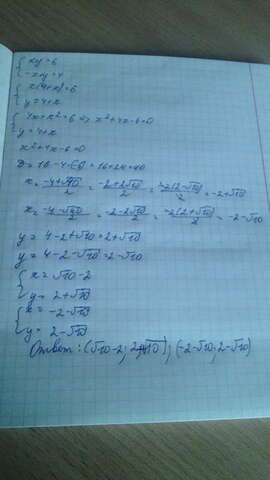 { xy = 6
{ -x+y = 4
{ x(4+x) = 6
{ y = 4+x
{ 4x+x² = 6 => x²+4x-6=0
{ y = 4+x
x²+4x-6=0
D = 16-4·(-6) = 16+24 = 40
x = (-4+√40)/2 = (-2+2√10)/2 = (-2(2-√10))/2 = -2+√10
x = (-4-√40)/2 = (-2-2√10)/2 = (-2(2+√10))/2 = -2-√10
y = 4-2+√10 = 2+√10
y = 4-2-√10 = 2-√10
{ x = √10-2
{ y = 2+√10
{ x = -2-√10
{ y = 2-√10
Ответ: (√10-2; 2+√10); (-2-√10; 2-√10)